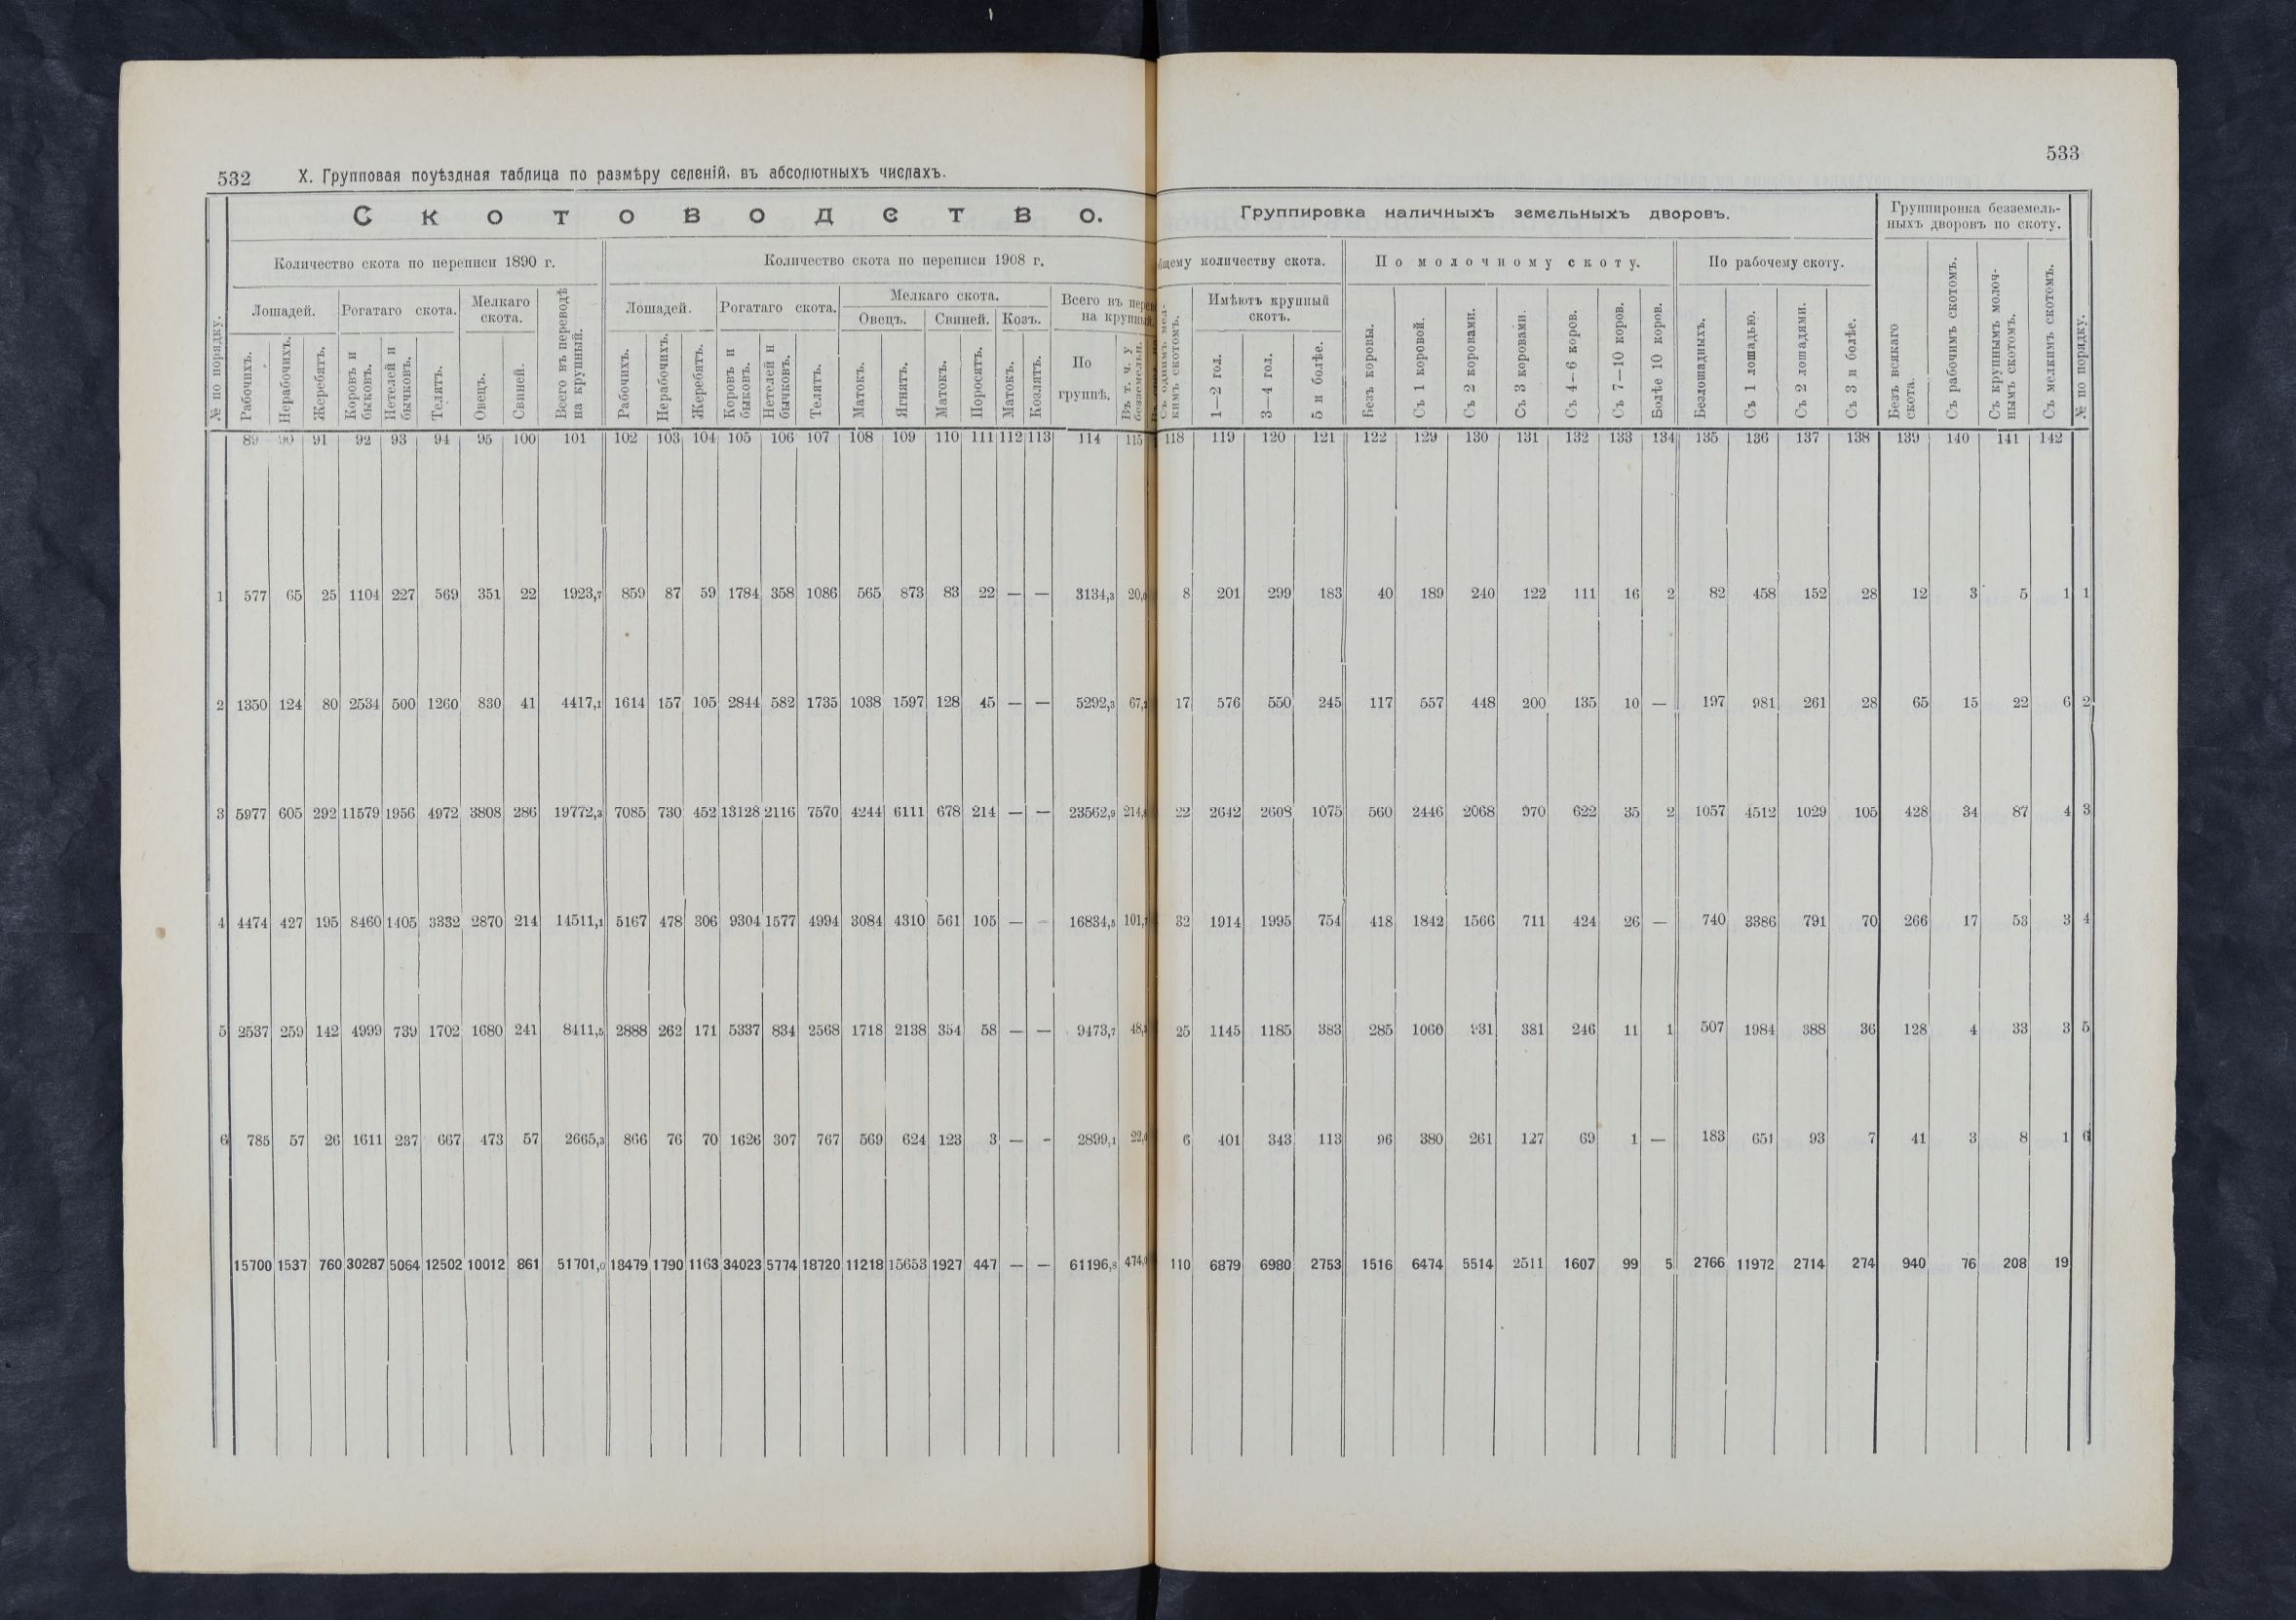 532 X. Групповая поуѣздная таблица по размѣру селеній, въ абсолютныхъ числахъ.
С К О Т О В О Д С Т В О.
Количество скота по переписи 1890 г. Количество скота по переписи 1908 г.
Лошадей. Рогатаго скота. Мелкаго скота. Всего въ переводѣ на крупный. Лошадей. Рогатаго скота. Мелкаго скота. Всего въ на крупный
Овецъ. Свиней. Козъ.
№ по порядку. Рабочихъ. Нерабочихъ. Жеребятъ. Коровъ и быковъ. Нетелей и бычковъ. Телятъ. Овецъ. Свиней. Рабочихъ. Нерабочихъ. Жеребятъ. Коровъ и быковъ. Нетелей и бычковъ. Телятъ. Матокъ. Ягнятъ. Матокъ. Поросятъ. Матокъ. Козлятъ. По группѣ. Въ т. ч. у безземельн.
89 90 91 92 93 94 95 100 101 102 103 104 105 106 107 108 109 110 111 112 113 114 115
1 577 65 25 1104 227 569 351 22 1923,7 859 87 59 1784 358 1086 565 873 83 22 — — 3134,3
2 1350 124 80 2534 500 1260 830 41 4417,1 1614 157 105 2844 582 1735 1038 1597 128 45 — — 5292,3
3 5977 605 292 11579 1956 4972 3808 286 19772,3 7085 730 452 13128 2116 7570 4244 6111 678 214 — — 23562,9
4 4474 427 195 8460 1405 3332 2870 214 14511,1 5167 478 306 9304 1577 4994 3084 4310 561 105 — — 16834,5
5 2537 259 142 4999 739 1702 1680 241 8411,5 2888 262 171 5337 834 2568 1718 2138 354 58 — — 9473,7
6 785 57 26 1611 237 667 473 57 2665,3 866 76 70 1626 307 767 569 624 123 3 — - 2899,1
15700 1537 760 30287 5064 12502 10012 861 51701,0 18479 1790 1163 34023 5774 18720 11218 15653 1927 447 — — 61196,8
533
Группировка наличныхъ земельныхъ дворовъ. Группировка безземельныхъ дворовъ по скоту.
количеству скота. По молочному скоту. По рабочему скоту.
Имѣютъ крупный скотъ.
Съ однимъ мелкимъ скотомъ. 1—2 гол. 3—4 гол. 5 и болѣе. Безъ коровы. Съ 1 коровой. Съ 2 коровами. Съ 3 коровами. Съ 4—6 коров. Съ 7—10 коров. Болѣе 10 коров. Безлошадныхъ. Съ 1 лошадью. Съ 2 лошадями. Съ 3 и болѣе. Безъ всякаго скота. Съ рабочимъ скотомъ. Съ крупнымъ молочнымъ скотомъ. Съ мелкимъ скотомъ. № по порядку.
118 119 120 121 122 129 130 131 132 133 134 135 136 137 138 139 140 141 142
8 201 299 183 40 189 240 122 111 16 2 82 458 152 28 12 3 5 1 1
17 576 550 245 117 557 448 200 135 10 — 197 981 261 28 65 15 22 6 2
22 2642 2608 1075 560 2446 2068 970 622 35 2 1057 4512 1029 105 428 34 87 4 3
32 1914 1995 754 418 1842 1566 711 424 26 — 740 3386 791 70 266 17 53 3 4
25 1145 1185 383 285 1060 931 381 246 11 1 507 1984 388 36 128 4 33 3 5
6 401 343 113 96 380 261 127 69 1 — 183 651 93 7 41 3 8 1 6
110 6879 6980 2753 1516 6474 5514 2511 1607 99 5 2766 11972 2714 274 940 76 208 19